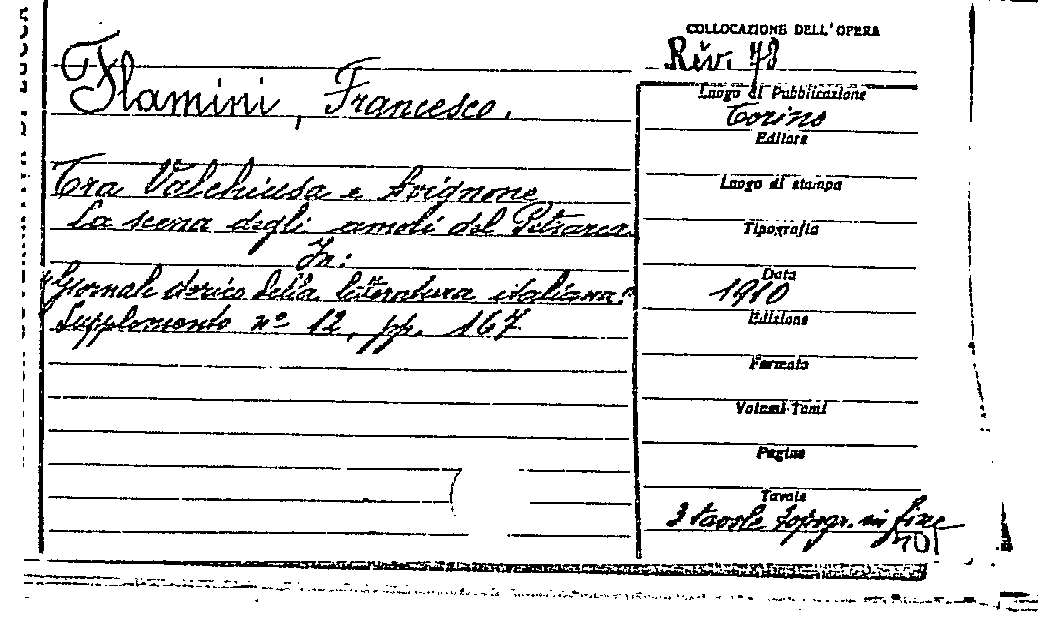 COLLOCAZIONE DELL'OPERA
Riv. 78
Flamini, Francesco.
Tra Valchiusa e Avignone
La scena degli amori del Petrarca.
In:
"Giornale storico della letteratura italiana"
Supplemento nº 12, pp. 167
Luogo di Pubblicazione
Torino
Editore
Luogo di stampa
Tipografia
Data
1910
Edizione
Formato
Volumi-Tomi
Pagine
Tavole
3 tavole topogr. in fine